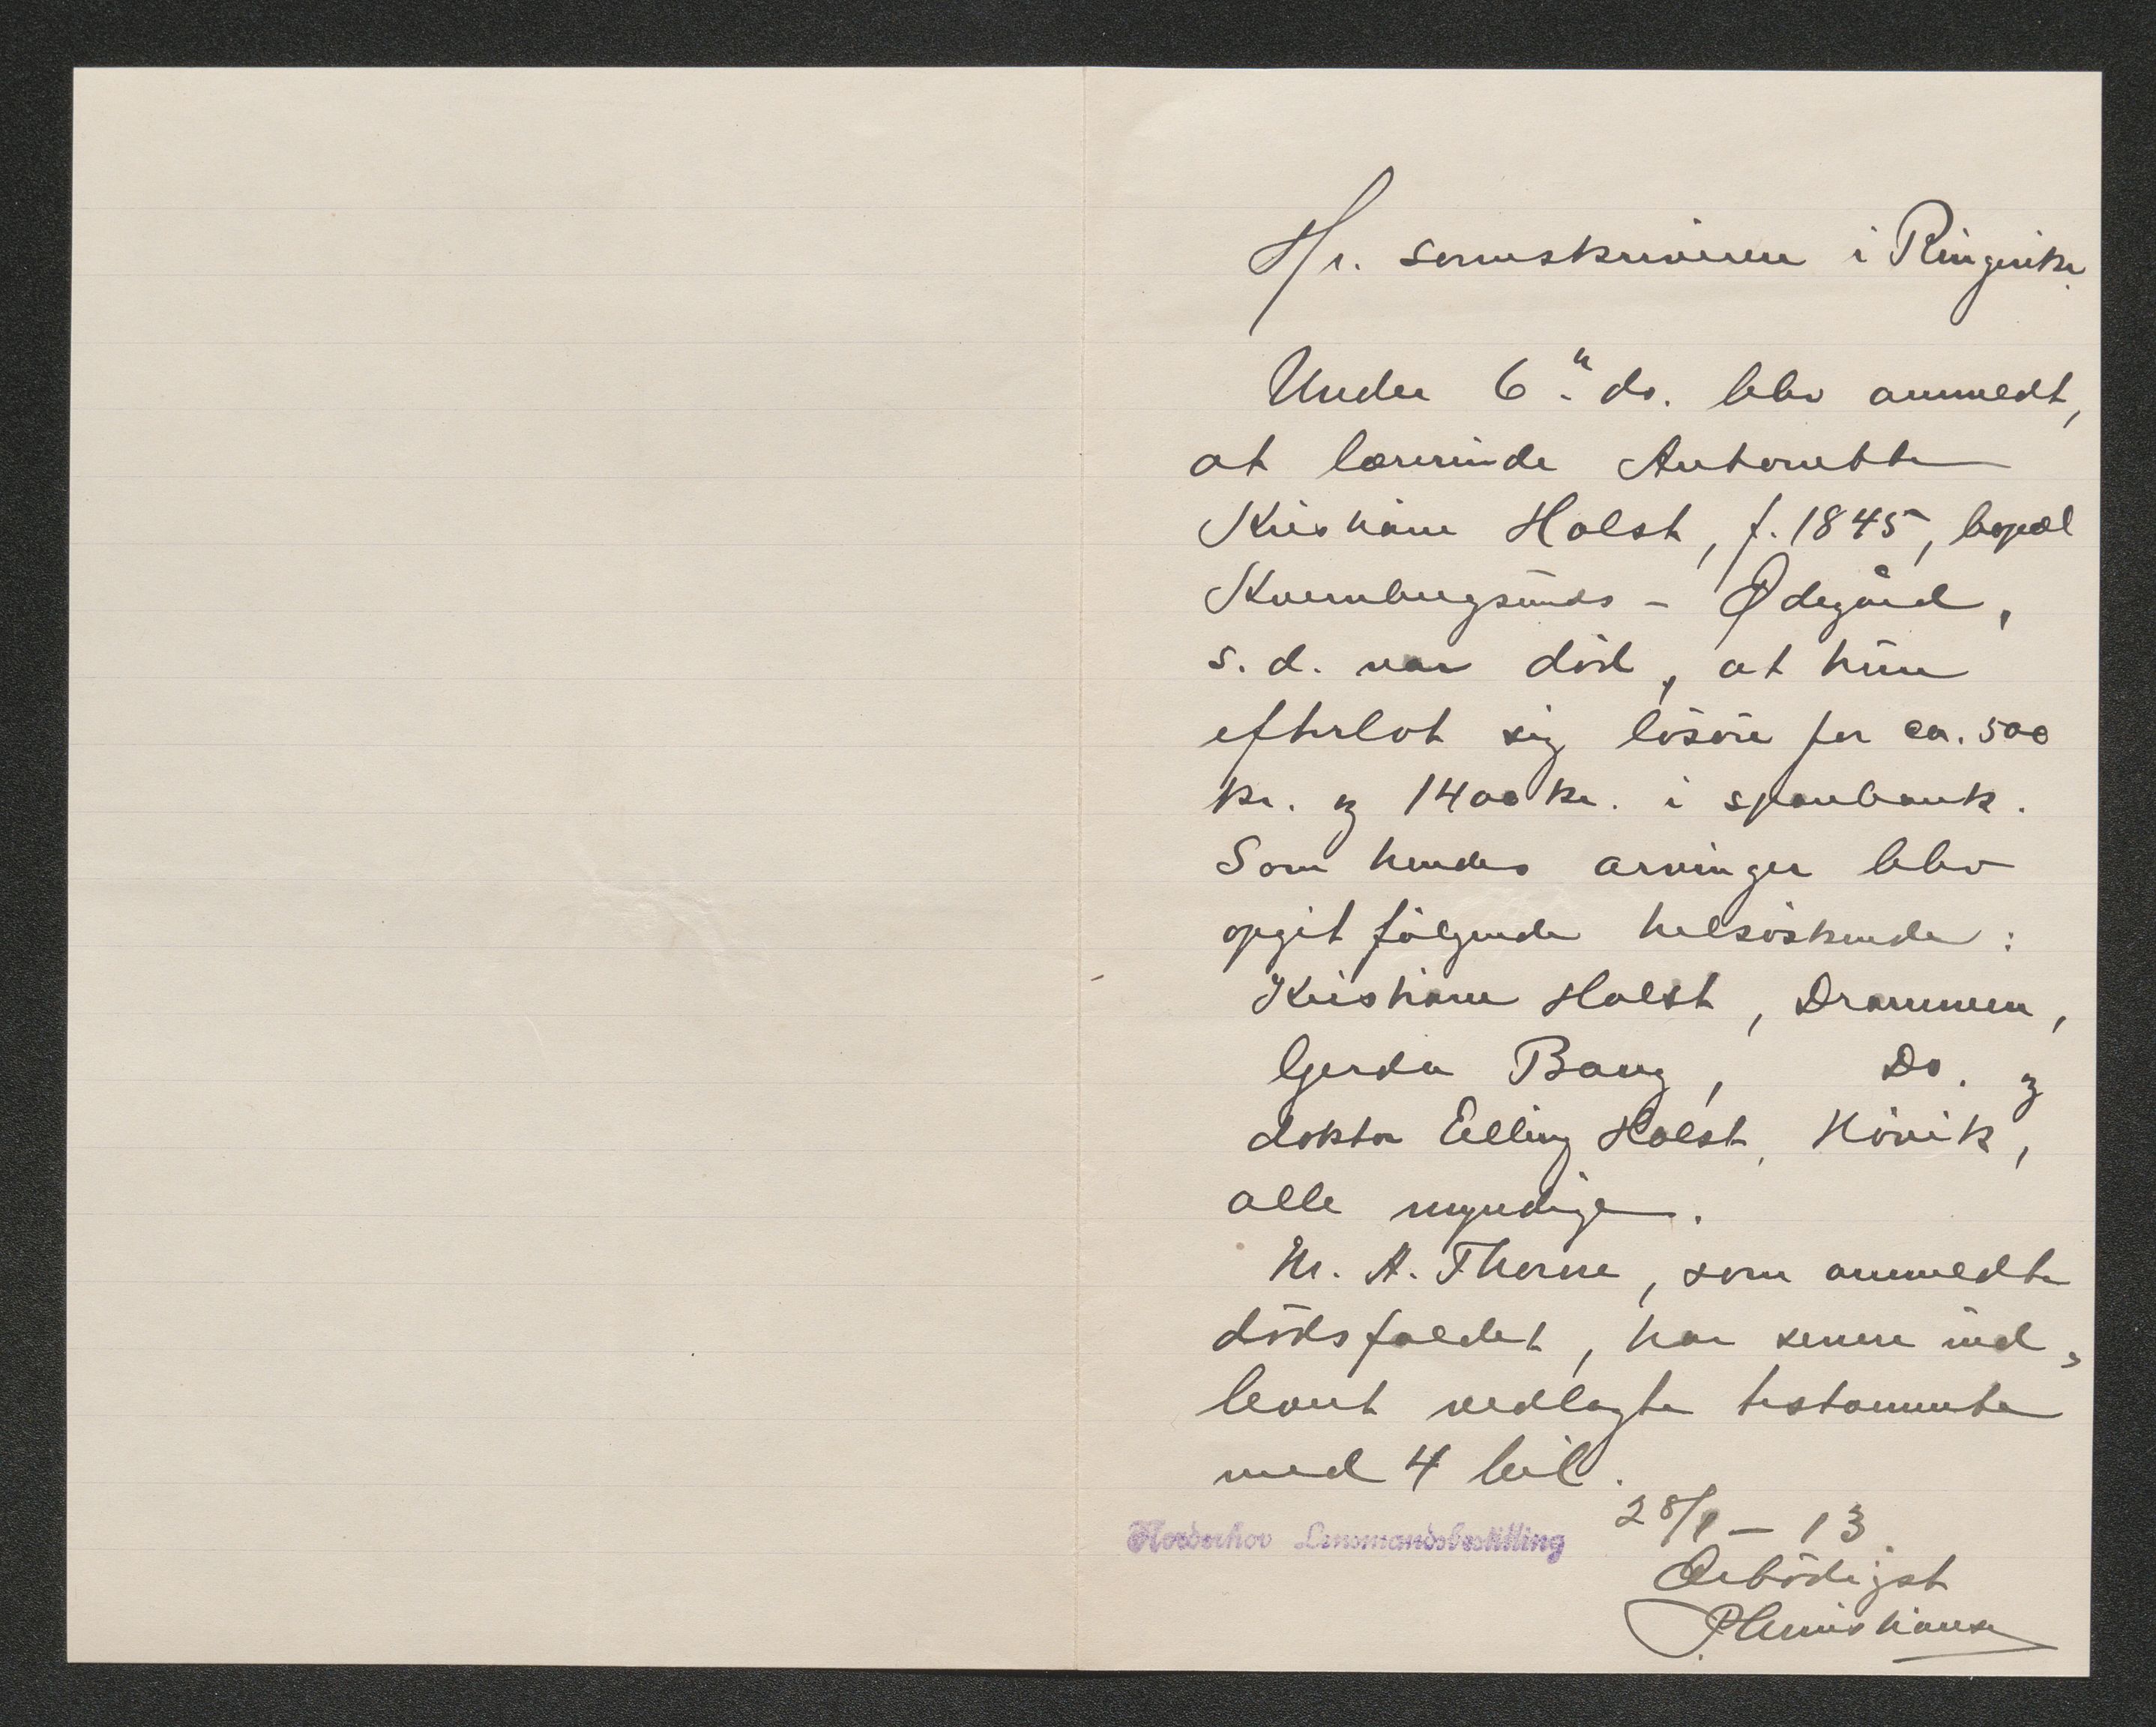 Hr. sorenskriveren i Ringerike.
Under 6.te ds. blev anmeldt,
at lærerinde Antonette
Kristiane Holst, f. 1845, bopæl
Kvernbergsunds - Ødegård,
s. d. var död, at hun
efterlot sig lösöre for ca. 500
kr. og 1400 kr. i sparebank.
Som hendes arvinger blev
opgit fölgende helsöskende:
Kristiane Holst, Drammen,
Gerda Bang, Do. og
doktor Elling Holst, Hövik,
alle myndige.
Hr. A. Thorne, som anmeldte
dödsfaldet, har senere ind-
levert vedlagte testamente
med 4 bil.
Norderhov Lensmandsbestilling
28/1 - 13
Ærbödigst
P. Christiansen